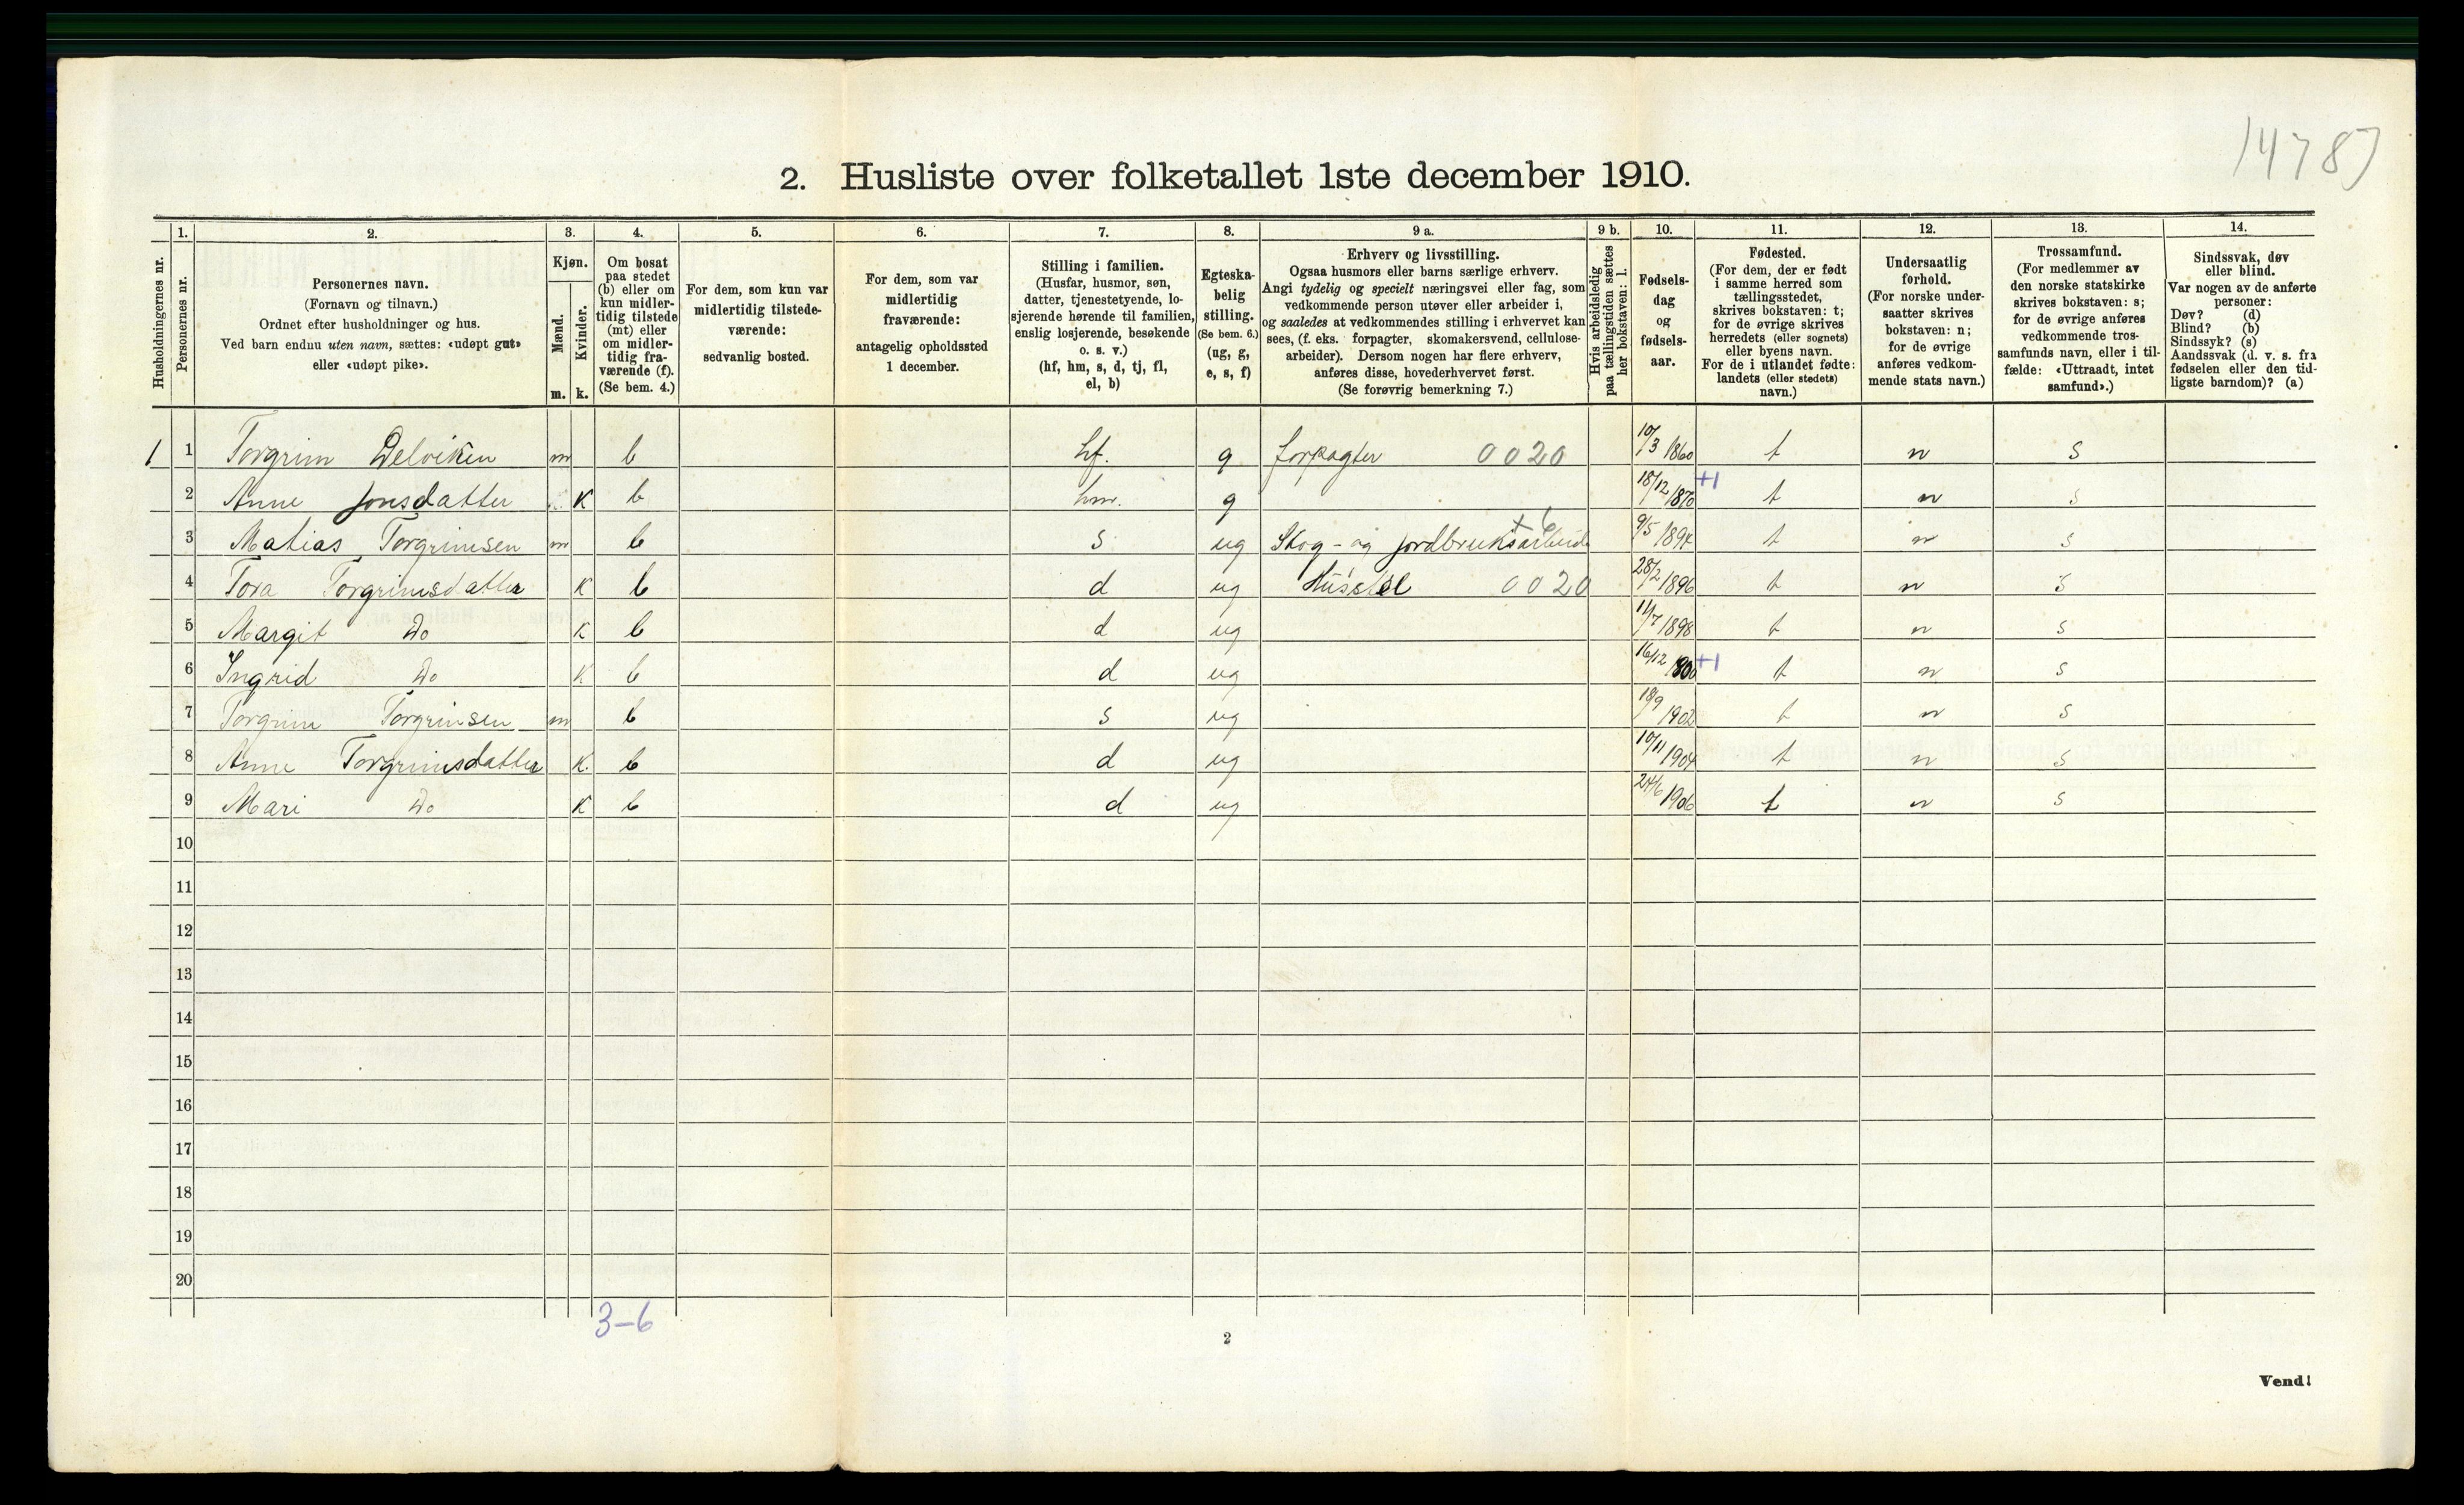 14787
2. Husliste over folketallet 1ste december 1910.
Husholdningernes nr.
1.
Personernes nr.
2.
Personernes navn.
(Fornavn og tilnavn.)
Ordnet efter husholdninger og hus.
Ved barn endnu uten navn, sættes: «udøpt gut»
eller «udøpt pike».
3.
Kjøn.
Mænd.
Kvinder.
m. k.
4.
Om bosat
paa stedet
(b) eller om
kun midler-
tidig tilstede
(mt) eller
om midler-
tidig fra-
værende (f).
(Se bem. 4.)
5.
For dem, som kun var
midlertidig tilstede-
værende:
sedvanlig bosted.
6.
For dem, som var
midlertidig
fraværende:
antagelig opholdssted
1 december.
7.
Stilling i familien.
(Husfar, husmor, søn,
datter, tjenestetyende, lo-
sjerende hørende til familien,
enslig losjerende, besøkende
o. s. v.)
(hf, hm, s, d, tj, fl,
el, b)
8.
Egteska-
belig
stilling.
(Se bem. 6.)
(ug, g,
e, s, f)
9 a.
Erhverv og livsstilling.
Ogsaa husmors eller barns særlige erhverv.
Angi tydelig og specielt næringsvei eller fag, som
vedkommende person utøver eller arbeider i,
og saaledes at vedkommendes stilling i erhvervet kan
sees, (f. eks. forpagter, skomakersvend, cellulose-
arbeider). Dersom nogen har flere erhverv,
anføres disse, hovederhvervet først.
(Se forøvrig bemerkning 7.)
9 b.
Hvis arbeidsledig
paa tællingstiden sættes
her bokstaven: l.
10.
Fødsels-
dag
og
fødsels-
aar.
11.
Fødested.
(For dem, der er født
i samme herred som
tællingsstedet,
skrives bokstaven: t;
for de øvrige skrives
herredets (eller sognets)
eller byens navn.
For de i utlandet fødte:
landets (eller stedets)
navn.)
12.
Undersaatlig
forhold.
(For norske under-
saatter skrives
bokstaven: n;
for de øvrige
anføres vedkom-
mende stats navn.)
13.
Trossamfund.
(For medlemmer av
den norske statskirke
skrives bokstaven: s;
for de øvrige anføres
vedkommende tros-
samfunds navn, eller i til-
fælde: «Uttraadt, intet
samfund».)
14.
Sindssvak, døv
eller blind.
Var nogen av de anførte
personer:
Døv? (d)
Blind? (b)
Sindssyk? (s)
Aandssvak (d. v. s. fra
fødselen eller den tid-
ligste barndom)? (a)
1 1 Torgrim Delviken m b hf. g forpagter 0020 10/3 1860 t n s
2 Anne Jonsdatter K b hm. g 18/12 1870 +1 t n s
3 Matias Torgrimsen m b s ug Skog- og jordbruksarbeide +6 9/5 1894 t n s
4 Tora Torgrimsdatter K b d ug Husstel 0020 28/2 1896 t n s
5 Margit Do K b d ug 11/7 1898 t n s
6 Ingrid Do K b d ug 16/12 1900 +1 t n s
7 Torgrim Torgrimsen m b s ug 18/9 1902 t n s
8 Anne Torgrimsdatter K b d ug 10/11 1904 t n s
9 Mari Do K b d ug 24/6 1906 t n s
10
11
12
13
14
15
16
17
18
19
20
3-6
2
Vend!